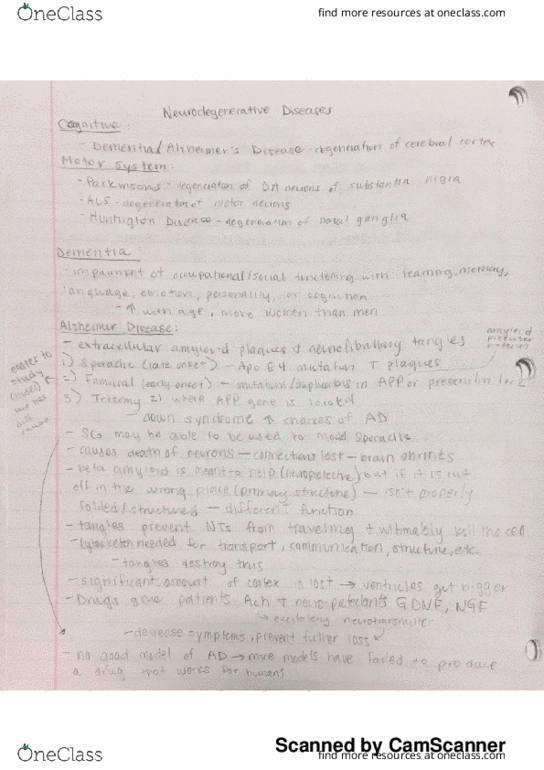 OneClass
find more resources at oneclass.com
Neurodegenerative Diseases
Cognitive:
- Dementia/Alzheimer's Disease - degeneration of cerebral cortex
Motor System:
- Parkinsons - degeneration of DA neurons of substantia nigra
- ALS - degeneration of motor neurons
- Huntington Disease - degeneration of basal ganglia
Dementia:
- impairment of occupational/social functioning with learning, memory,
language, emotion, personality, or cognition
- ↑ with age, more women than men
Alzheimer Disease:
amyloid
precursor
protein
- extracellular amyloid plaques + neurofibrillary tangles
1) Sporadic (late onset) - Apo E4 mutation ↑ plaques
easier to
study
2) Familial (early onset) - mutations/duplications in APP or presenilin 1 or 2
3) Trisomy 21 where APP gene is located
down syndrome ↑ chances of AD
- SC may be able to be used to model sporadic
- causes death of neurons - connections lost - brain shrinks
- beta amyloid is meant to help (neuroprotective) but if it is cut
off in the wrong place (primary structure) - isn't properly
folded/structured - different function
- tangles prevent NTs from traveling + ultimately kill the cell
- cytoskeleton needed for transport, communication, structure, etc.
- tangles destroy this
- significant amount of cortex is lost → ventricles get bigger
- Drugs give patients Ach + neuroprotectants GDNF, NGF
↳ excitatory neurotransmitter
- decrease symptoms, prevent further loss
- no good model of AD → mice models have failed to produce
a drug that works for humans
Scanned by CamScanner
OneClass
find more resources at oneclass.com